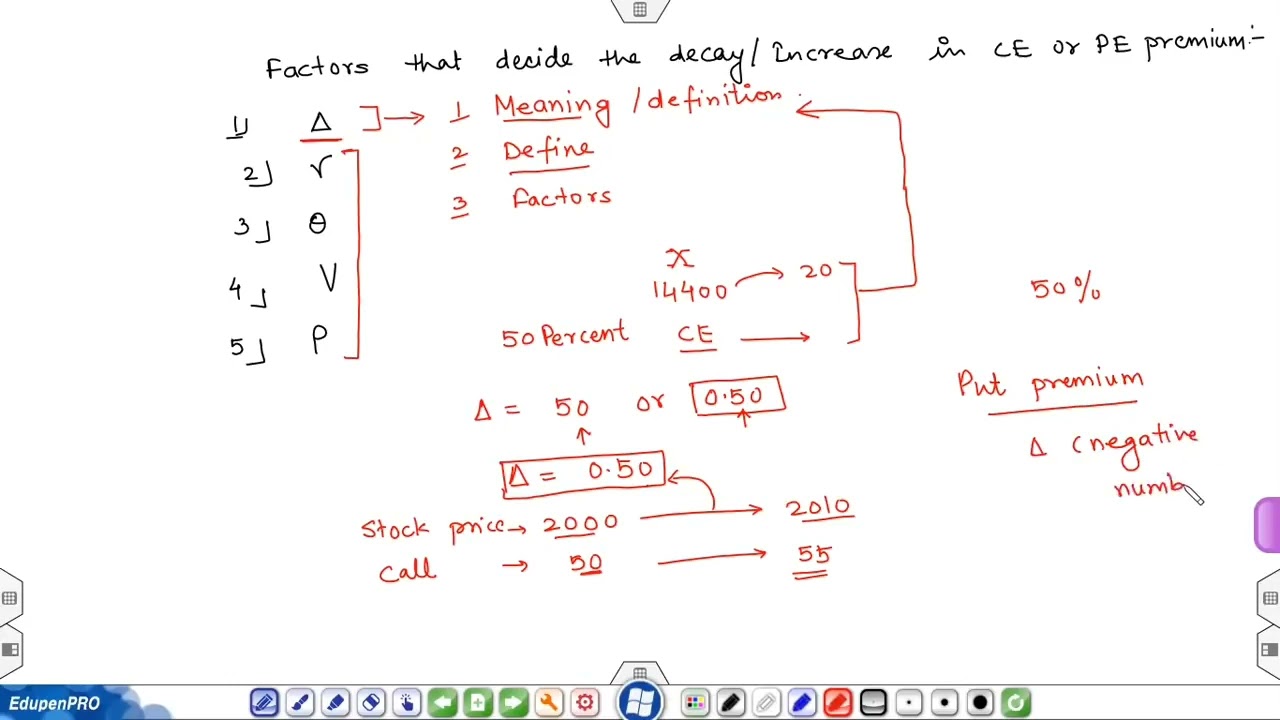 Factors that decide the decay/Increase in CE or PE premium:-
1) Δ → 1 Meaning/definition
2) γ 2 Define
3) θ 3 Factors
4) V
5) ρ
X
14400 → 20
50%
50 Percent CE →
Δ = 50 or 0.50
Put premium
Δ (negative
numb
Δ = 0.50
Stock price → 2000 → 2010
Call → 50 → 55
EdupenPRO